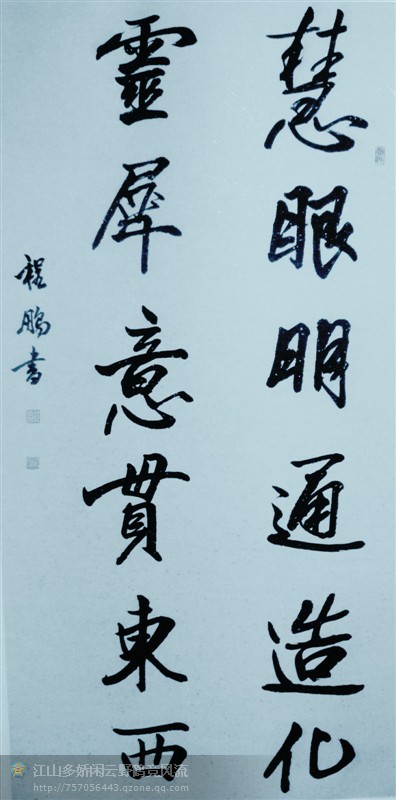 慧眼明通造化
靈犀意貫東西
程鵬書
江山多娇闲云野鹤竞风流
http://757056443.qzone.qq.com